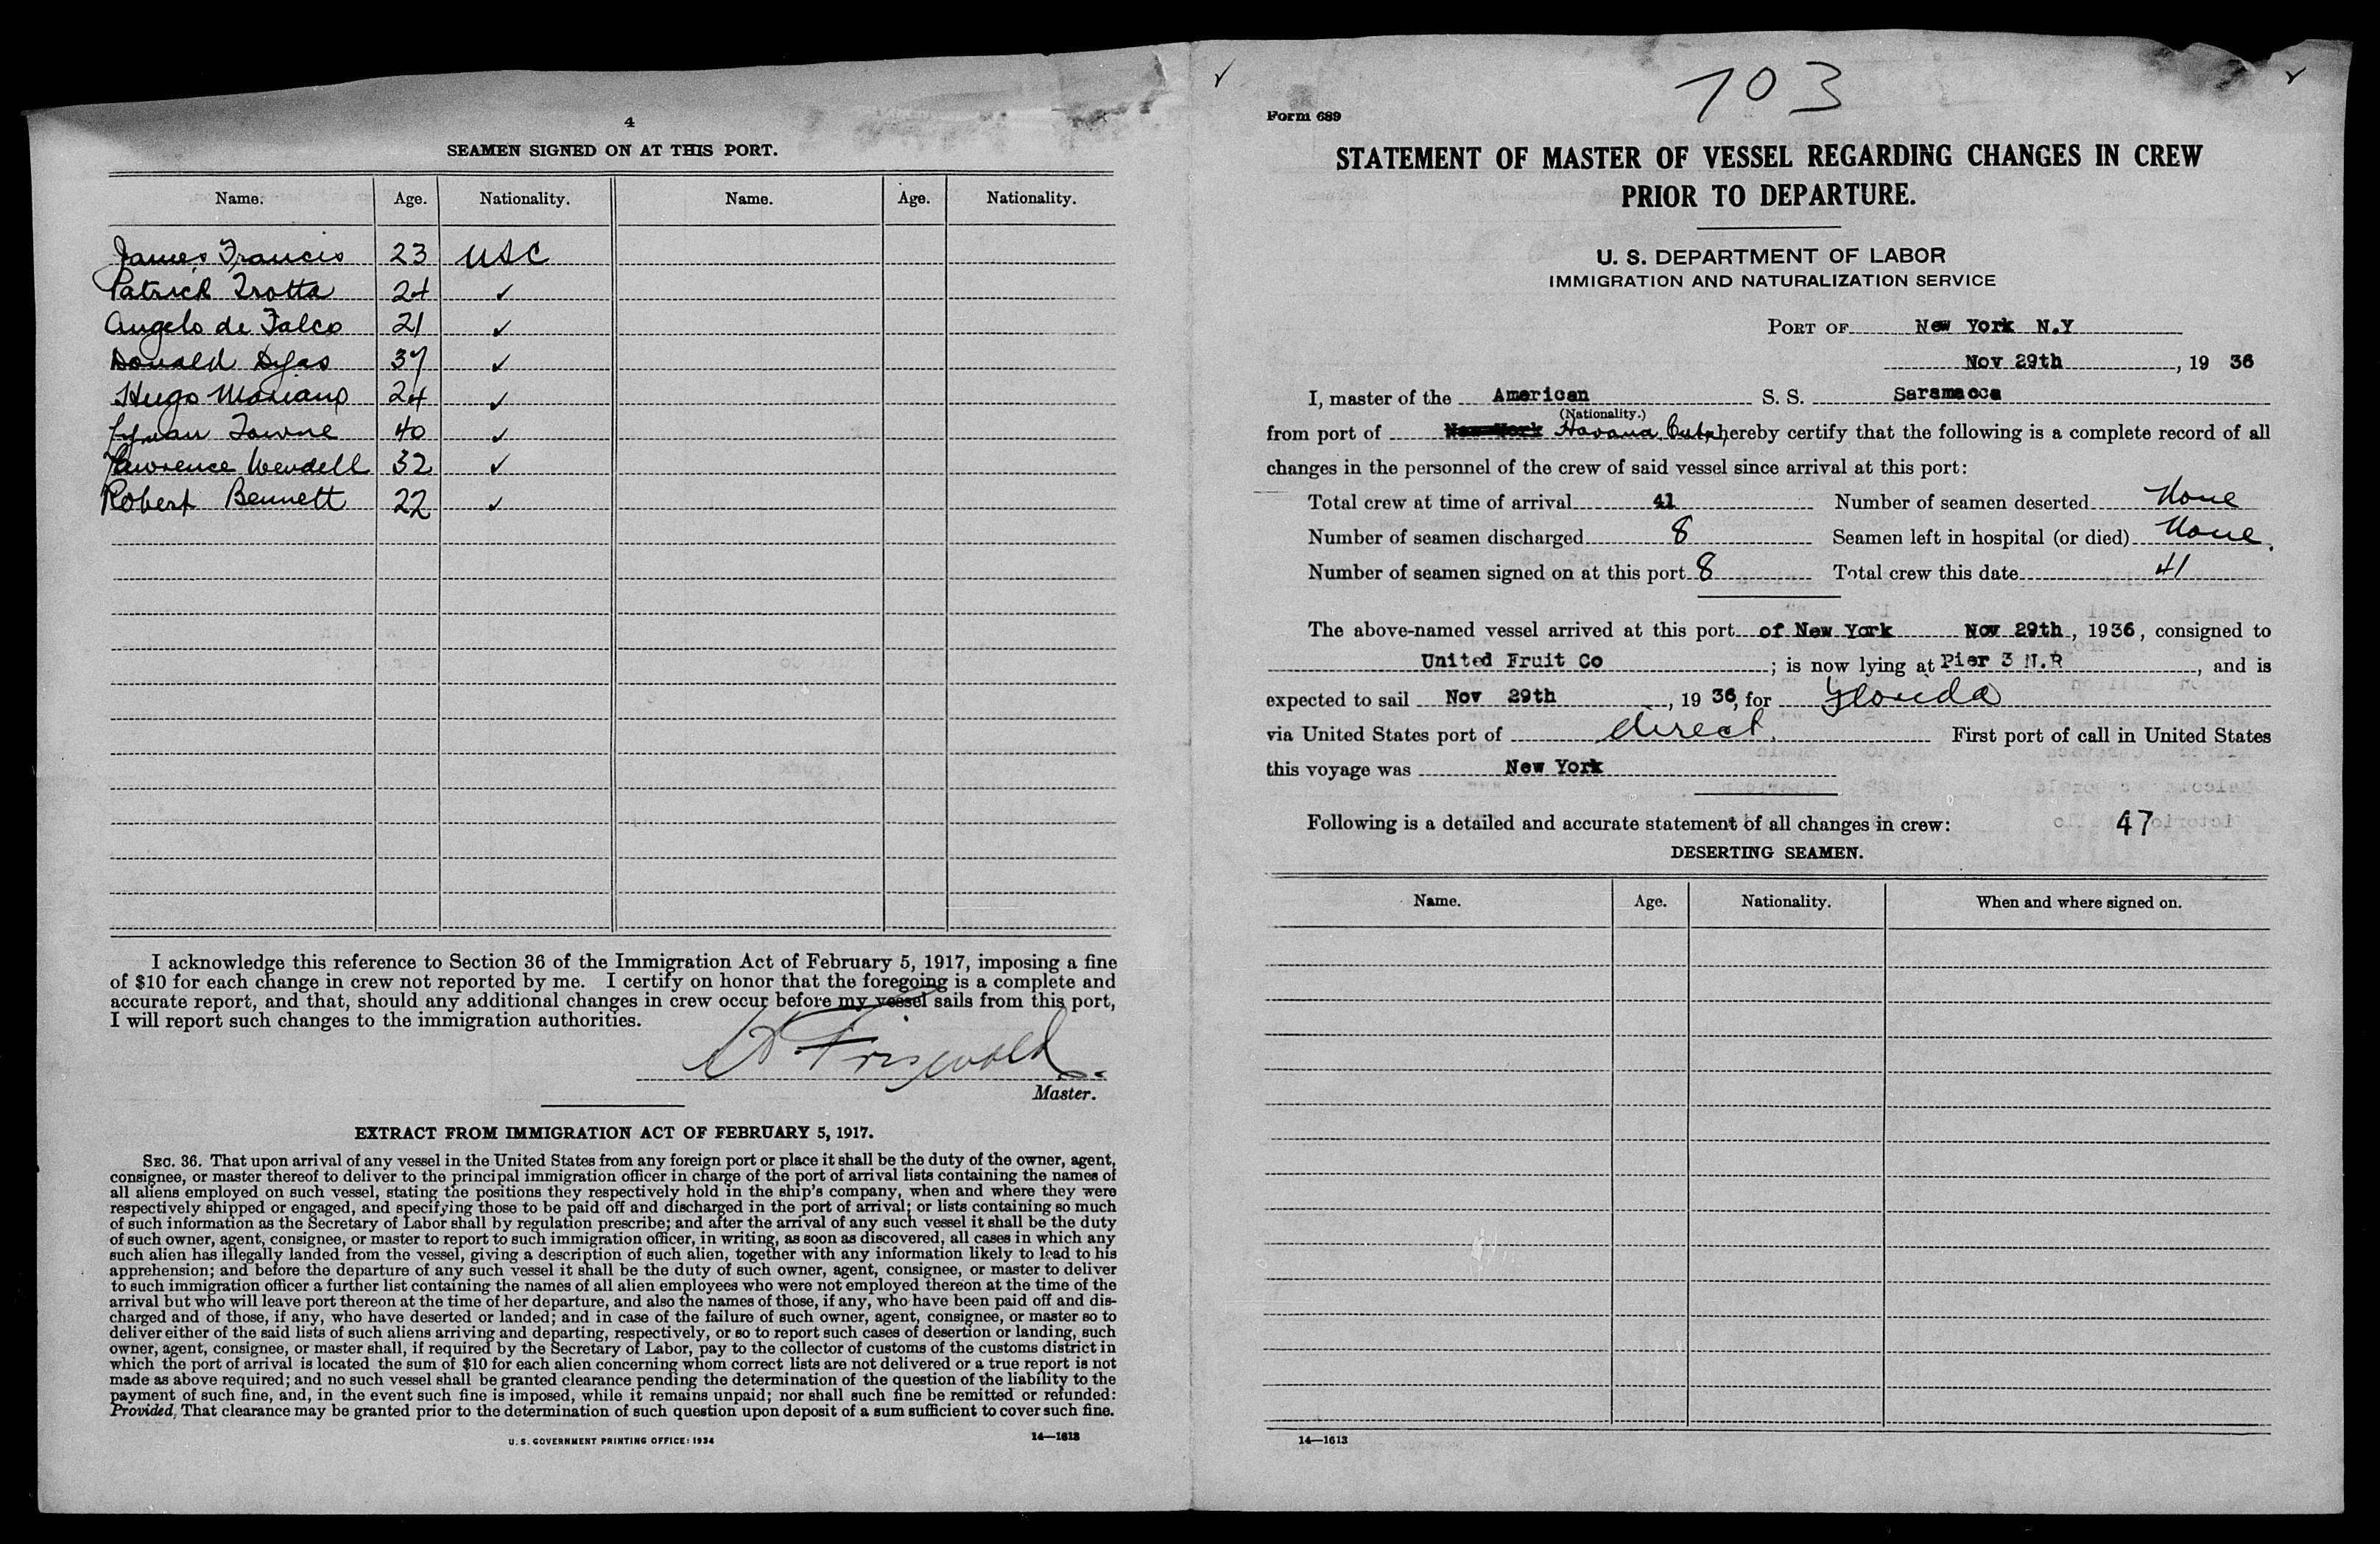 4
SEAMEN SIGNED ON AT THIS PORT.
Name. Age. Nationality. Name. Age. Nationality.
James Francis 23 USC
Patrick Trotta 24 ✓
Angelo de Falco 21 ✓
Donald Dyas 37 ✓
Hugo Mariano 24 ✓
Lyman Towne 40 ✓
Lawrence Wendell 32 ✓
Robert Bennett 22 ✓
I acknowledge this reference to Section 36 of the Immigration Act of February 5, 1917, imposing a fine
of $10 for each change in crew not reported by me. I certify on honor that the foregoing is a complete and
accurate report, and that, should any additional changes in crew occur before my vessel sails from this port,
I will report such changes to the immigration authorities.
Master.
EXTRACT FROM IMMIGRATION ACT OF FEBRUARY 5, 1917.
SEC. 36. That upon arrival of any vessel in the United States from any foreign port or place it shall be the duty of the owner, agent,
consignee, or master thereof to deliver to the principal immigration officer in charge of the port of arrival lists containing the names of
all aliens employed on such vessel, stating the positions they respectively hold in the ship's company, when and where they were
respectively shipped or engaged, and specifying those to be paid off and discharged in the port of arrival; or lists containing so much
of such information as the Secretary of Labor shall by regulation prescribe; and after the arrival of any such vessel it shall be the duty
of such owner, agent, consignee, or master to report to such immigration officer, in writing, as soon as discovered, all cases in which any
such alien has illegally landed from the vessel, giving a description of such alien, together with any information likely to lead to his
apprehension; and before the departure of any such vessel it shall be the duty of such owner, agent, consignee, or master to deliver
to such immigration officer a further list containing the names of all alien employees who were not employed thereon at the time of the
arrival but who will leave port thereon at the time of her departure, and also the names of those, if any, who have been paid off and dis-
charged and of those, if any, who have deserted or landed; and in case of the failure of such owner, agent, consignee, or master so to
deliver either of the said lists of such aliens arriving and departing, respectively, or so to report such cases of desertion or landing, such
owner, agent, consignee, or master shall, if required by the Secretary of Labor, pay to the collector of customs of the customs district in
which the port of arrival is located the sum of $10 for each alien concerning whom correct lists are not delivered or a true report is not
made as above required; and no such vessel shall be granted clearance pending the determination of the question of the liability to the
payment of such fine, and, in the event such fine is imposed, while it remains unpaid; nor shall such fine be remitted or refunded:
Provided, That clearance may be granted prior to the determination of such question upon deposit of a sum sufficient to cover such fine.
U. S. GOVERNMENT PRINTING OFFICE: 1934 14—1613
✓ 103 ✓
Form 689
STATEMENT OF MASTER OF VESSEL REGARDING CHANGES IN CREW
PRIOR TO DEPARTURE.
U. S. DEPARTMENT OF LABOR
IMMIGRATION AND NATURALIZATION SERVICE
PORT OF New York N.Y
Nov 29th, 19 36
I, master of the American S. S. Saramacca
(Nationality.)
from port of New York Havana, Cuba, hereby certify that the following is a complete record of all
changes in the personnel of the crew of said vessel since arrival at this port:
Total crew at time of arrival 41 Number of seamen deserted None
Number of seamen discharged 8 Seamen left in hospital (or died) None.
Number of seamen signed on at this port 8 Total crew this date 41
The above-named vessel arrived at this port of New York Nov 29th, 1936, consigned to
United Fruit Co; is now lying at Pier 3 N.R, and is
expected to sail Nov 29th, 19 36, for Florida
via United States port of direct. First port of call in United States
this voyage was New York
Following is a detailed and accurate statement of all changes in crew: 47
DESERTING SEAMEN.
Name. Age. Nationality. When and where signed on.
14—1613